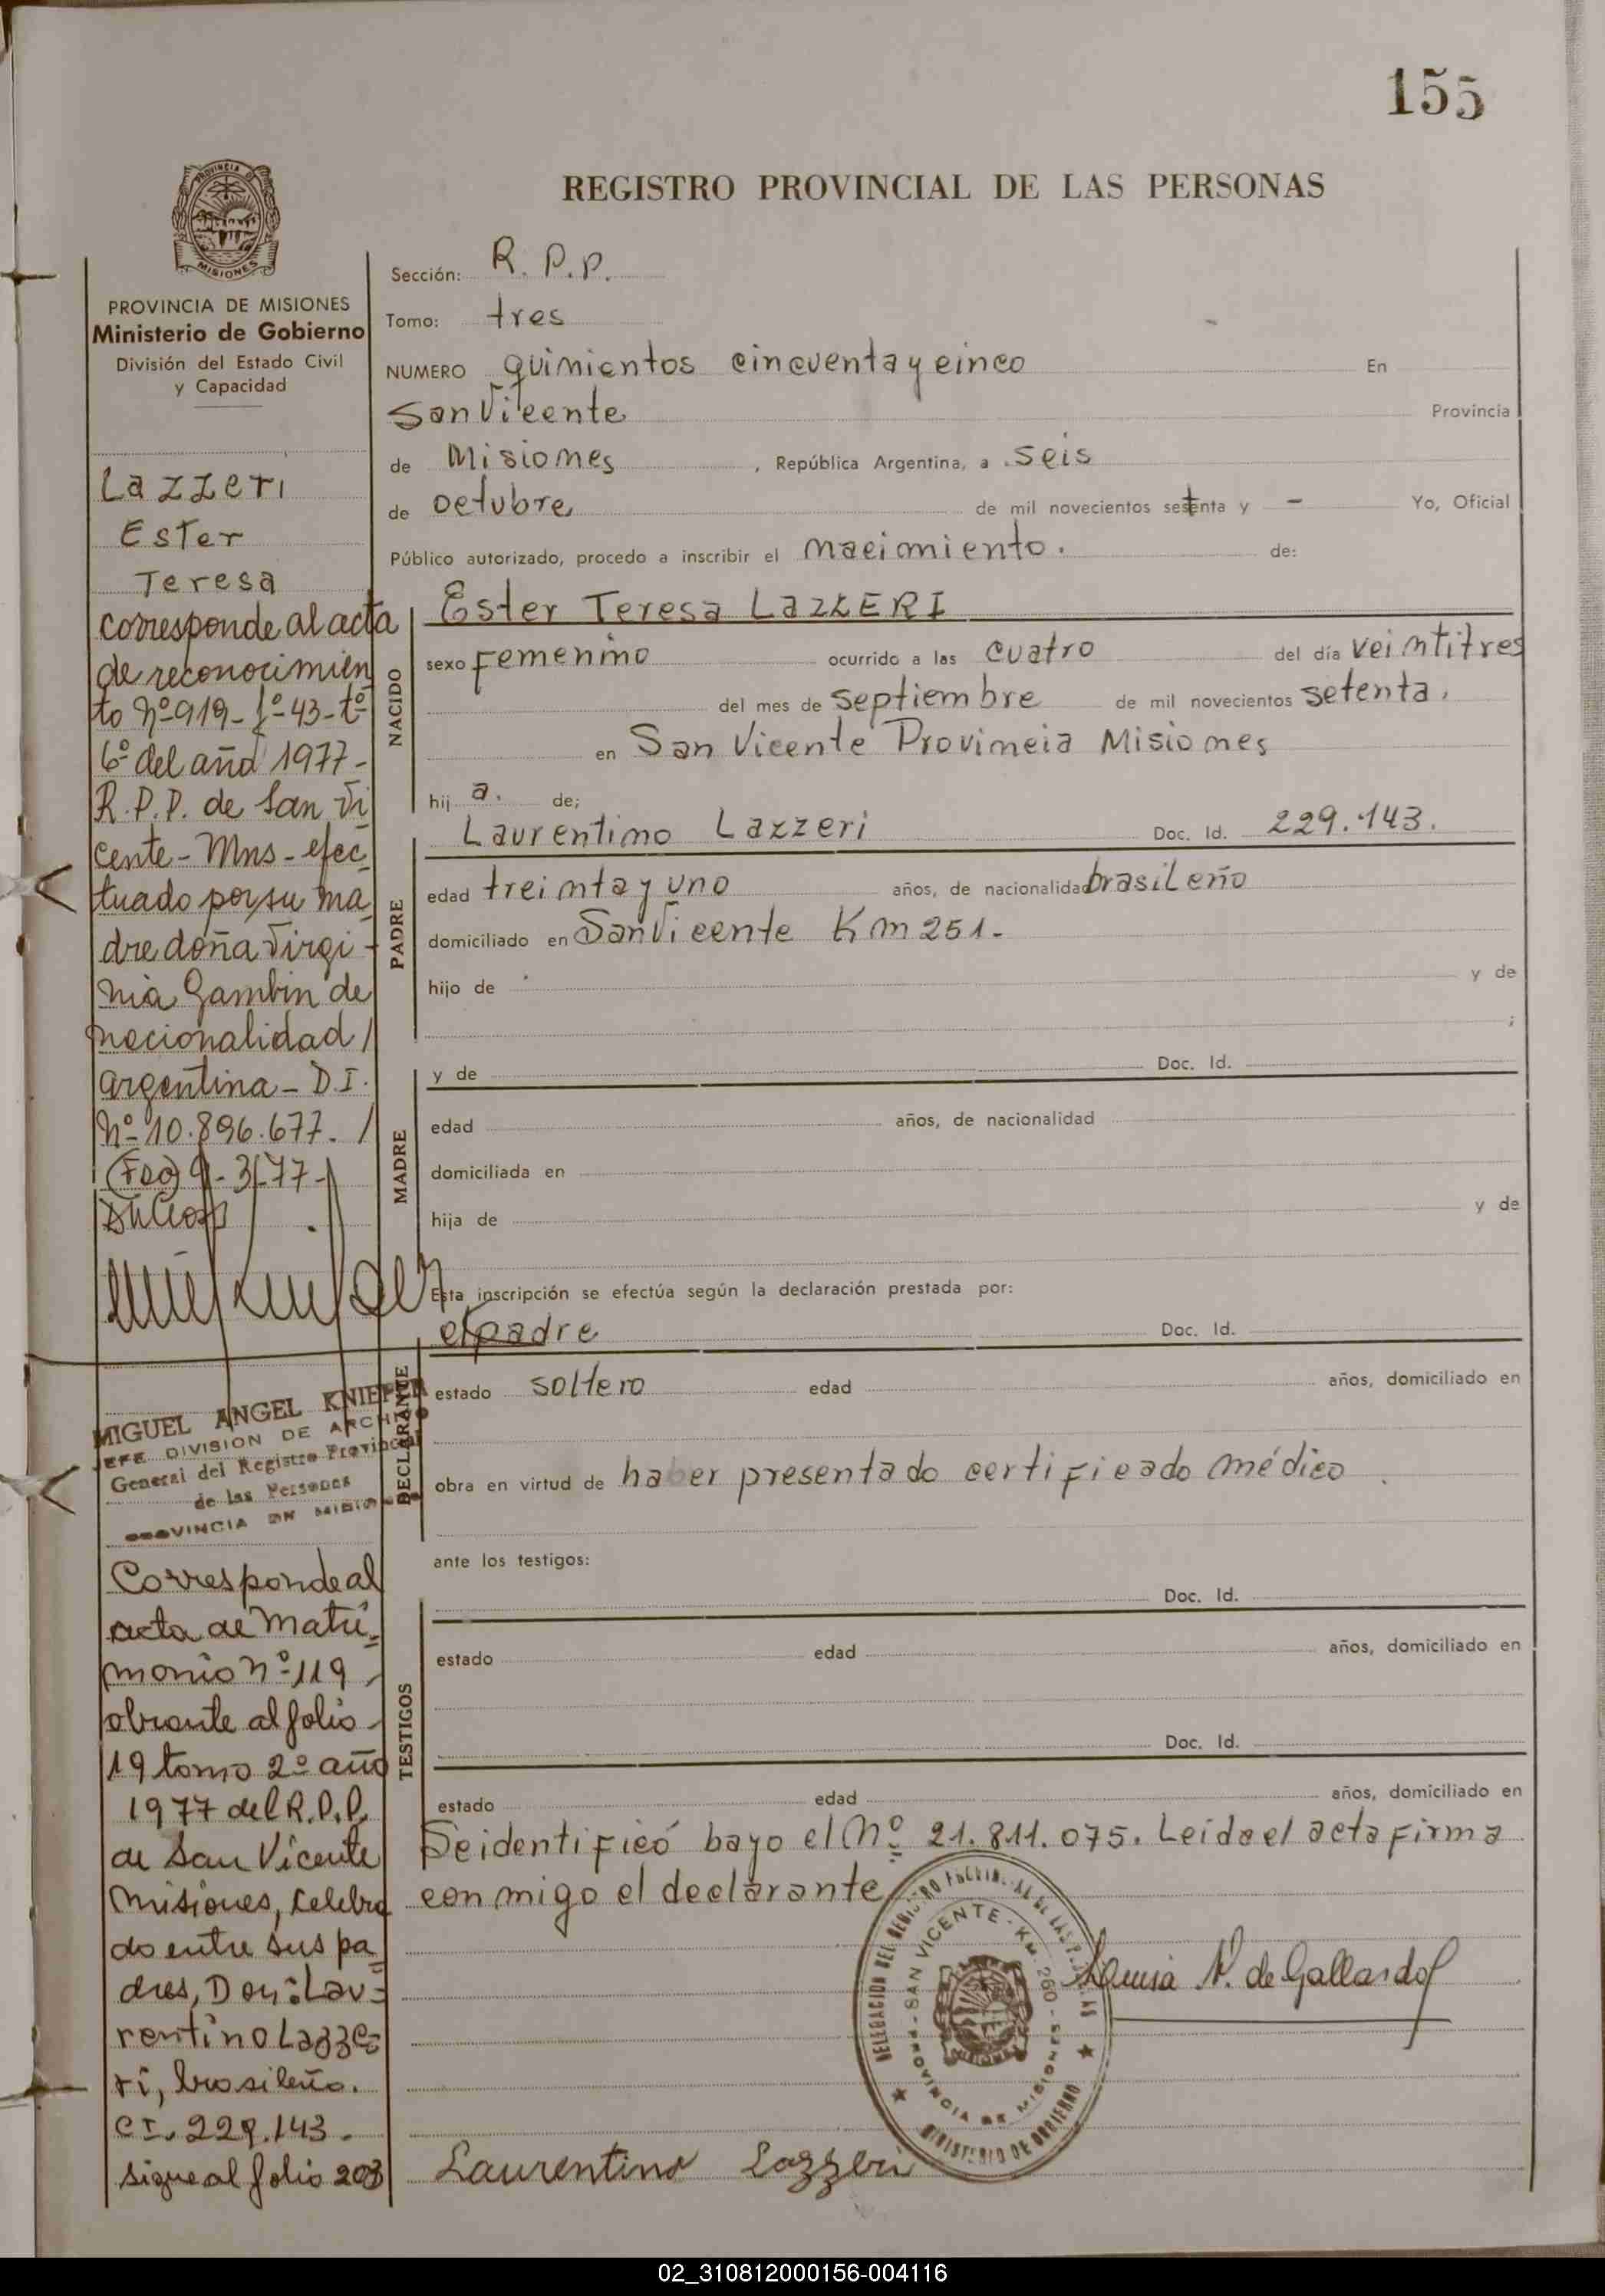 155
REGISTRO PROVINCIAL DE LAS PERSONAS
PROVINCIA DE MISIONES
Ministerio de Gobierno
División del Estado Civil
y Capacidad
Lazzeri
Ester
Teresa
corresponde al acta
de reconocimien
to Nº 919 - fº - 43 - tº
6º del año 1977 -
R.P.P. de San Vi
cente - Mns - efec
tuado por su ma
dre doña Virgi -
nia Gambin de
nacionalidad /
argentina - D.I.
Nº 10.896.677. /
MIGUEL ANGEL KNIEFER
JEFE DIVISION DE ARCHIVO
General del Registro Provincial
de las Personas
PROVINCIA DE MISIONES
Corresponde al
acta de Matri-
monio nº 119
obrante al folio
19 tomo 2º año
1977 del R.P.P.
de San Vicente
Misiones, celebra
do entre sus pa
dres, Don: Lau=
rentino Lazze=
ri, brasileño.
CI. 229.143.
sigue al folio 203
Sección: R. P. P.
Tomo: tres
NUMERO quinientos cincuenta y cinco En
San Vicente Provincia
de Misiones , República Argentina, a seis
de octubre de mil novecientos setenta y - Yo, Oficial
Público autorizado, procedo a inscribir el nacimiento. de:
NACIDO
Ester Teresa LAZZERI
sexo Femenino ocurrido a las cuatro del día veintitres
del mes de septiembre de mil novecientos setenta.
en San Vicente Provincia Misiones
hij a. de;
PADRE
Laurentino Lazzeri Doc. Id. 229.143.
edad treinta y uno años, de nacionalidad brasileño
domiciliado en San Vicente Km 251.
hijo de y de
;
MADRE
y de Doc. Id.
edad años, de nacionalidad
domiciliada en
hija de y de
Esta inscripción se efectúa según la declaración prestada por:
DECLARANTE
el padre Doc. Id.
estado soltero edad años, domiciliado en
obra en virtud de haber presentado certificado médico.
ante los testigos:
TESTIGOS
Doc. Id.
estado edad años, domiciliado en
Doc. Id.
estado edad años, domiciliado en
Se identificó bayo el Nº 21.811.075. Leida el acta firma
conmigo el declarante
DELEGACION DEL REGISTRO PROVINCIAL DE LAS PERSONAS
SAN VICENTE - KM. 260 -
PROVINCIA DE MISIONES
MINISTERIO DE GOBIERNO
de Gallardo
Laurentino Lazzeri
02_310812000156-004116